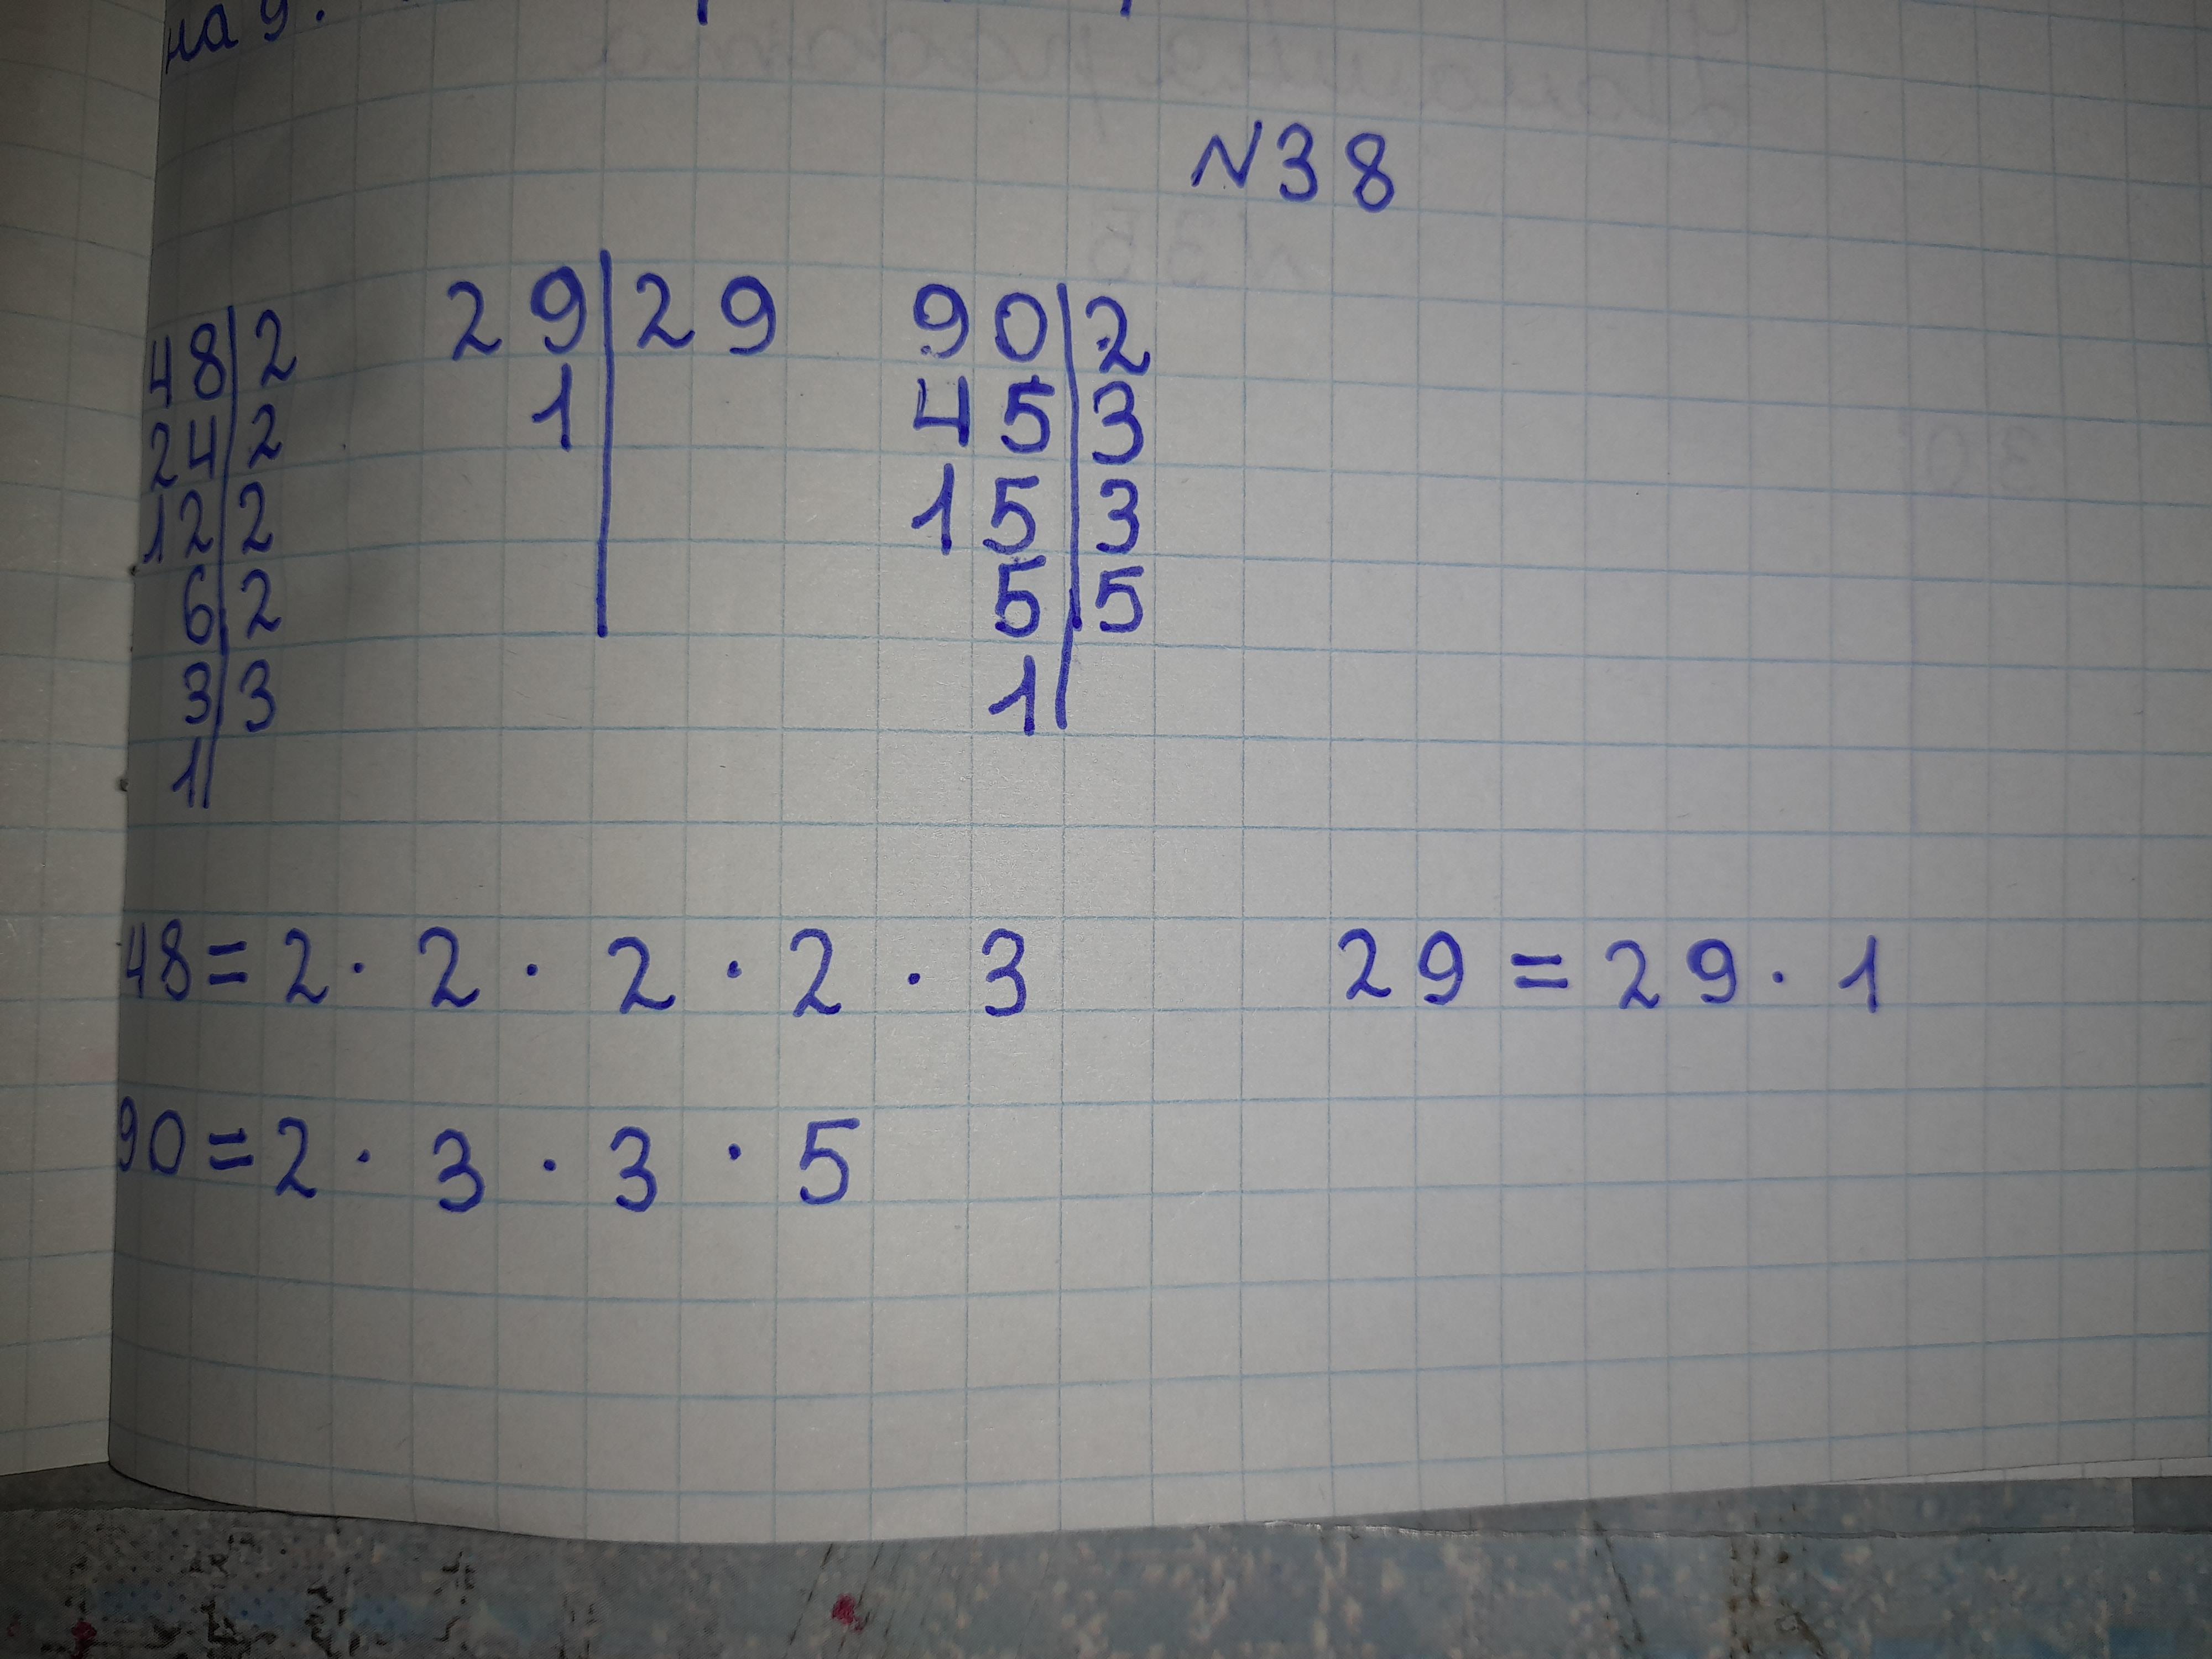 на 9.
N38
48|2 29|29 90|2
24|2 1| 45|3
12|2 15|3
6|2 5|5
3|3 1|
1|
48=2·2·2·2·3 29=29·1
90=2·3·3·5